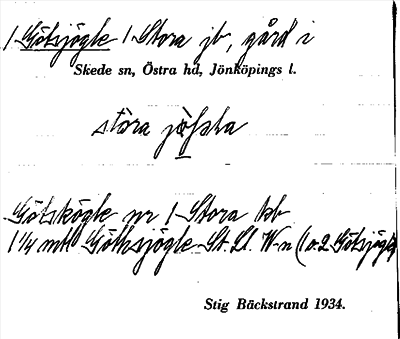 1 Götsjögle 1 Stora jb, gård i
Skede sn, Östra hd, Jönköpings l.
stòra
Götskögle nr 1 Stora
1 1/4 mtl Göthsjögle St. Ll. W-n (1 o. 2 Götsjögle
Stig Bäckstrand 1934.